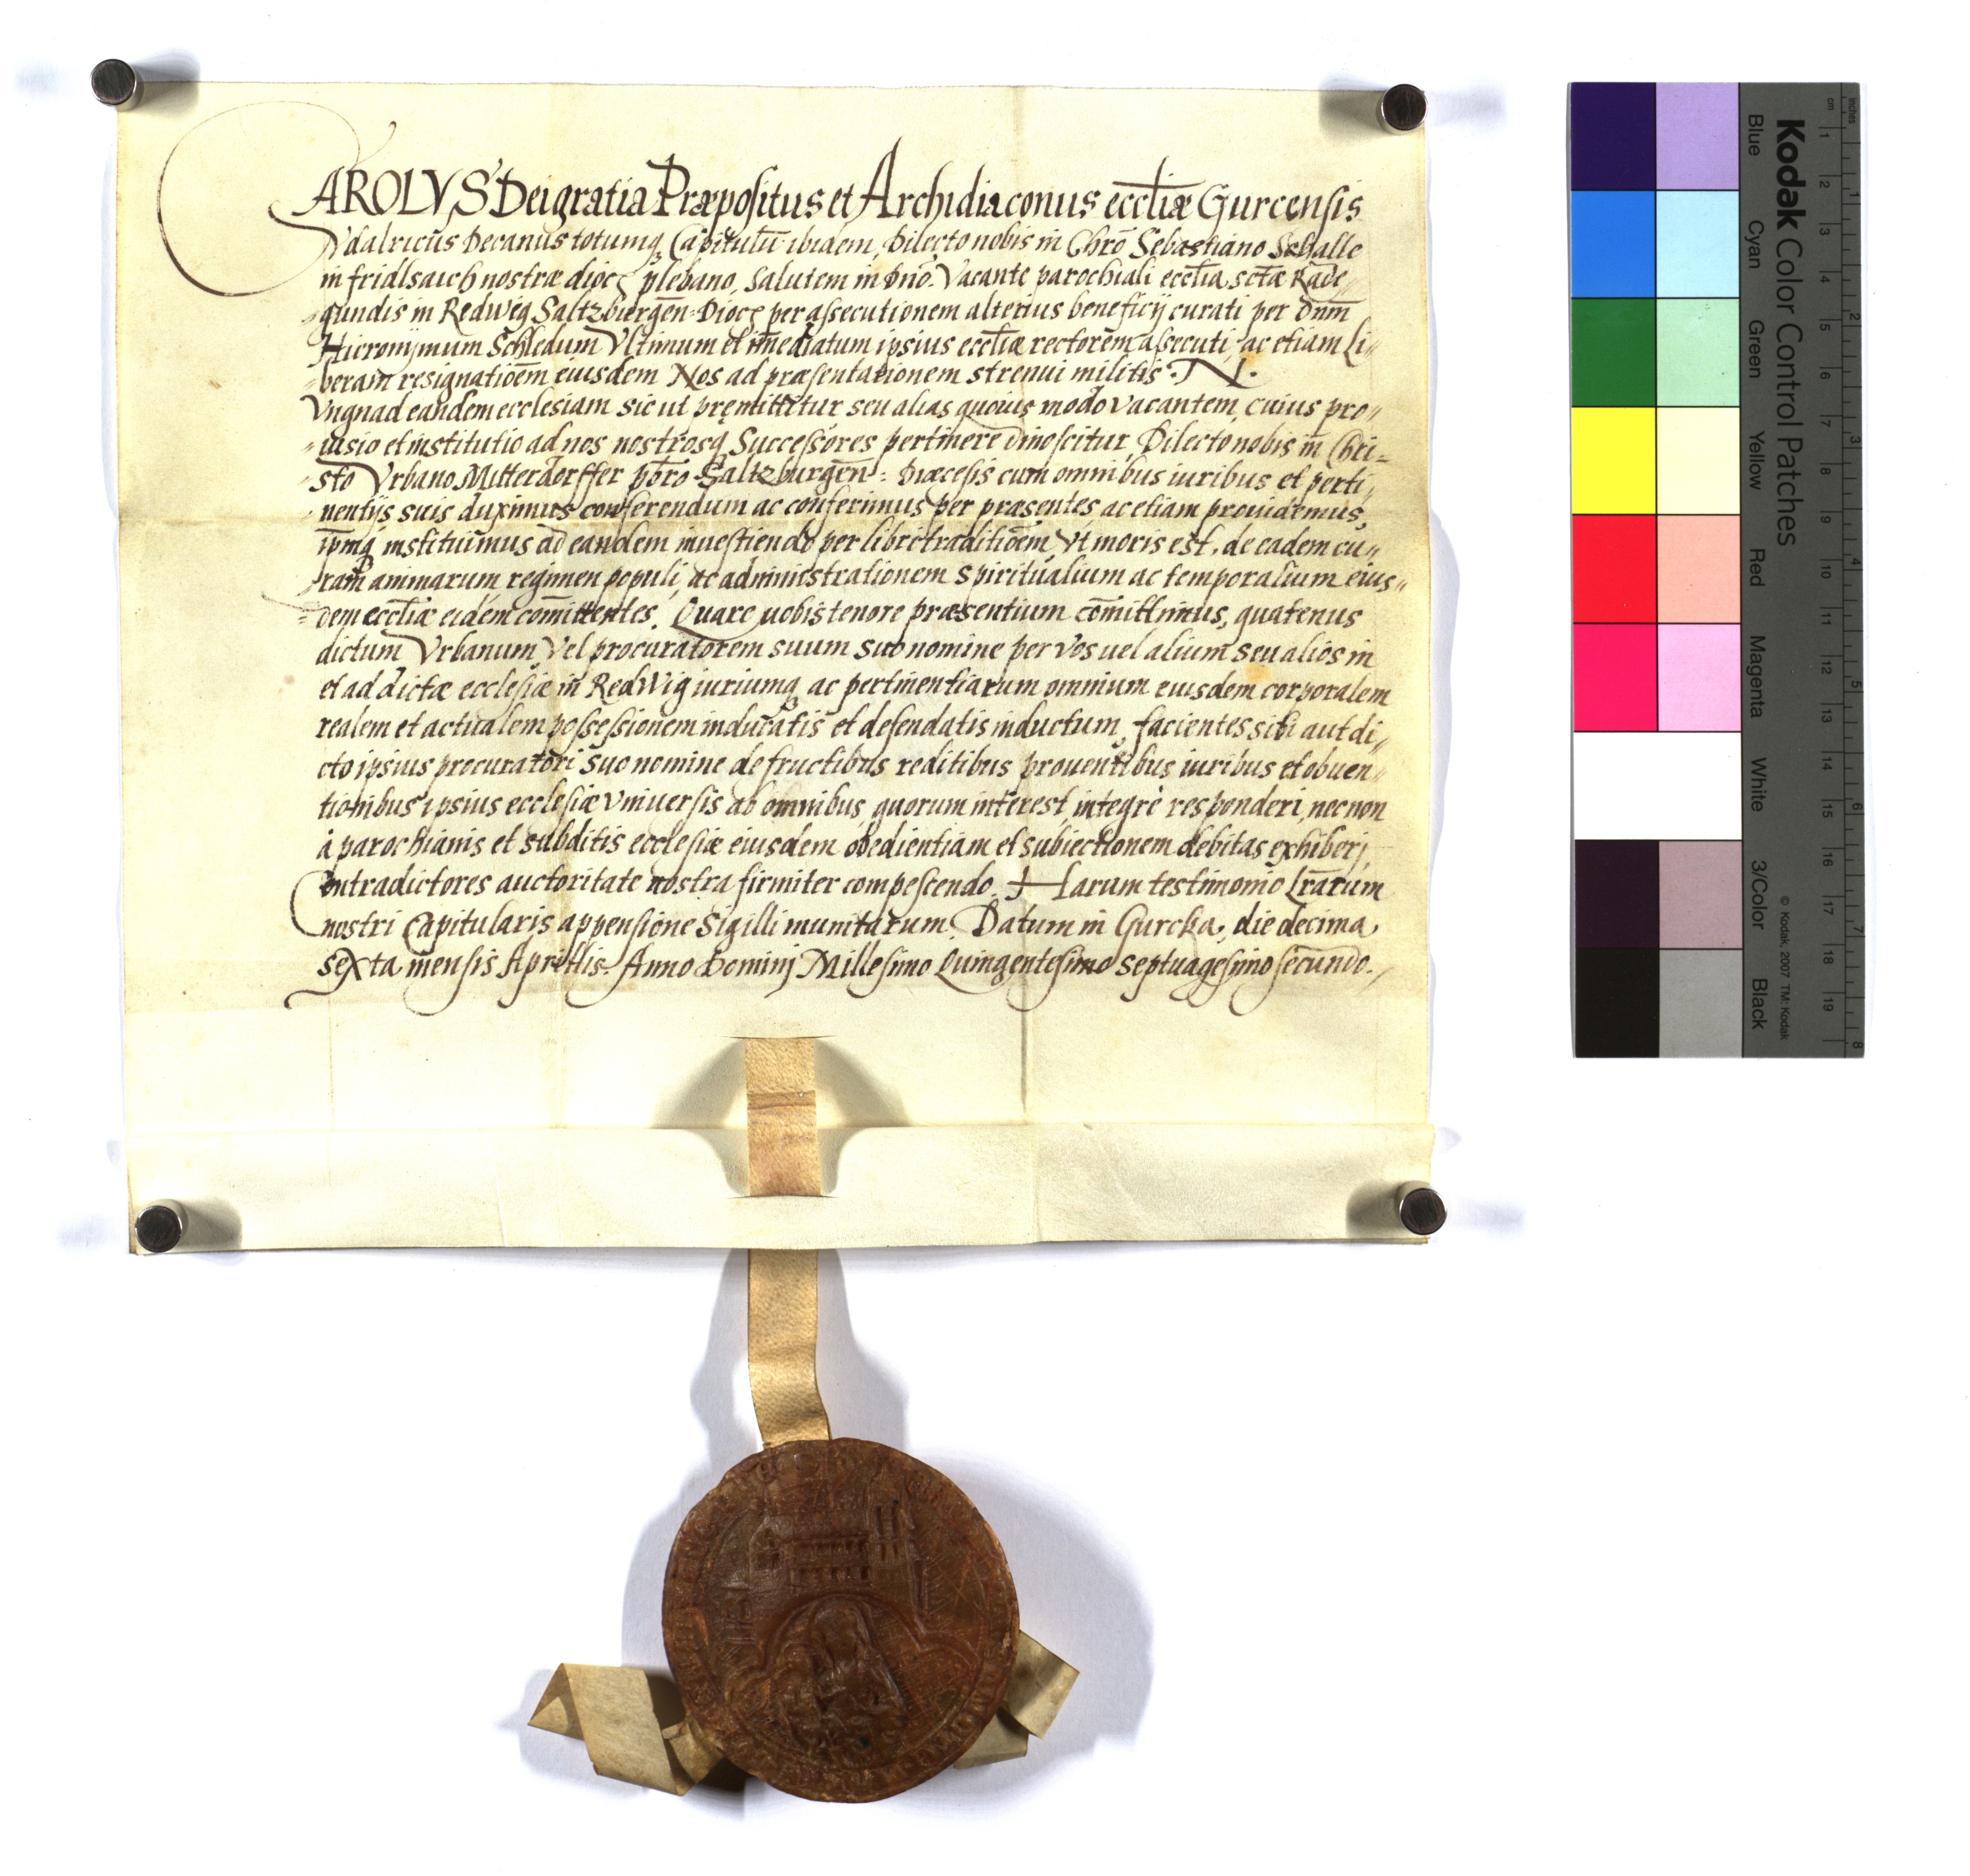 CAROLVS Dei gratia Præpositus et Archidiaconus eccłiæ Gurcensis
Vdalricus Decanus totumq₃ Capitulū ibidem, Dilecto nobis in Chrō Sebastiano Schalle
in fridlsaich nostræ dioc plebano, Salutem in Dnō. Vacante parochiali eccłia sctæ Rade„
„gundis in Redweg Saltzburgēn: Dioc per assecutionem alterius beneficij curati per Dnm̄
Hieronymum Schledum Vltimum et im̄ediatum ipsius eccłiæ rectorem assecuti, ac etiam Li„
„beram resignatiōem eiusdem Nos ad præsentationem strenui militis . N .
Vngnad eandem ecclesiam sic ut pręmittitur seu alias quouis modo vacantem, cuius pro„
„uisio et institutio ad nos nostrosq₃ Successores pertinere dinoscitur, Dilecto nobis in Chri„
„sto Vrbano Mitterdorffer pbr̄o Saltzburgēn: Diœcesis cum omnibus iuribus et perti„
„nentijs suis duximus conferendum ac conferimus per præsentes ac etiam prouidemus,
ip̄mq₃ instituimus ad eandem inuestiendo per libri traditiōem, Vt moris est, de eadem cu„
„ram animarum regimen populi, ac administrationem spiritualium ac temporalium eius„
„dem eccłiæ eidem com̄ittentes. Quare uobis tenore præsentium com̄ittimus, quatenus
dictum Vrbanum Vel procuratorem suum suo nomine per Vos uel alium seu alios in
et ad dictæ ecclesiæ in RedWig iuriumq₃ ac pertinentiarum omnium eiusdem corporalem
realem et actualem possessionem inducatis et defendatis inductum, facientes sibi aut di„
cto ipsius procuratori suo nomine de fructibus reditibus prouentibus iuribus et obuen„
tionibus ipsius ecclesiæ vniuersis ab omnibus, quorum interest, integrè responderi, necnon
à parochianis et subditis ecclesiæ eiusdem obedientiam et subiectionem debitas exhiberi,
Contradictores auctoritate nostra firmiter compescendo. Harum testimonio Lr̄arum
nostri Capitularis appensione Sigilli munitarum. Datum in Gurcka, die decima
sexta mensis Aprillis. Anno Domini Millesimo Quingentesimo septuagesimo secundo.
Kodak Color Control Patches
Blue Cyan Green Yellow Red Magenta White 3/Color Black
© Kodak, 2007 TM: Kodak
cm 1 2 3 4 5 6 7 8 9 10 11 12 13 14 15 16 17 18 19
inches 1 2 3 4 5 6 7 8